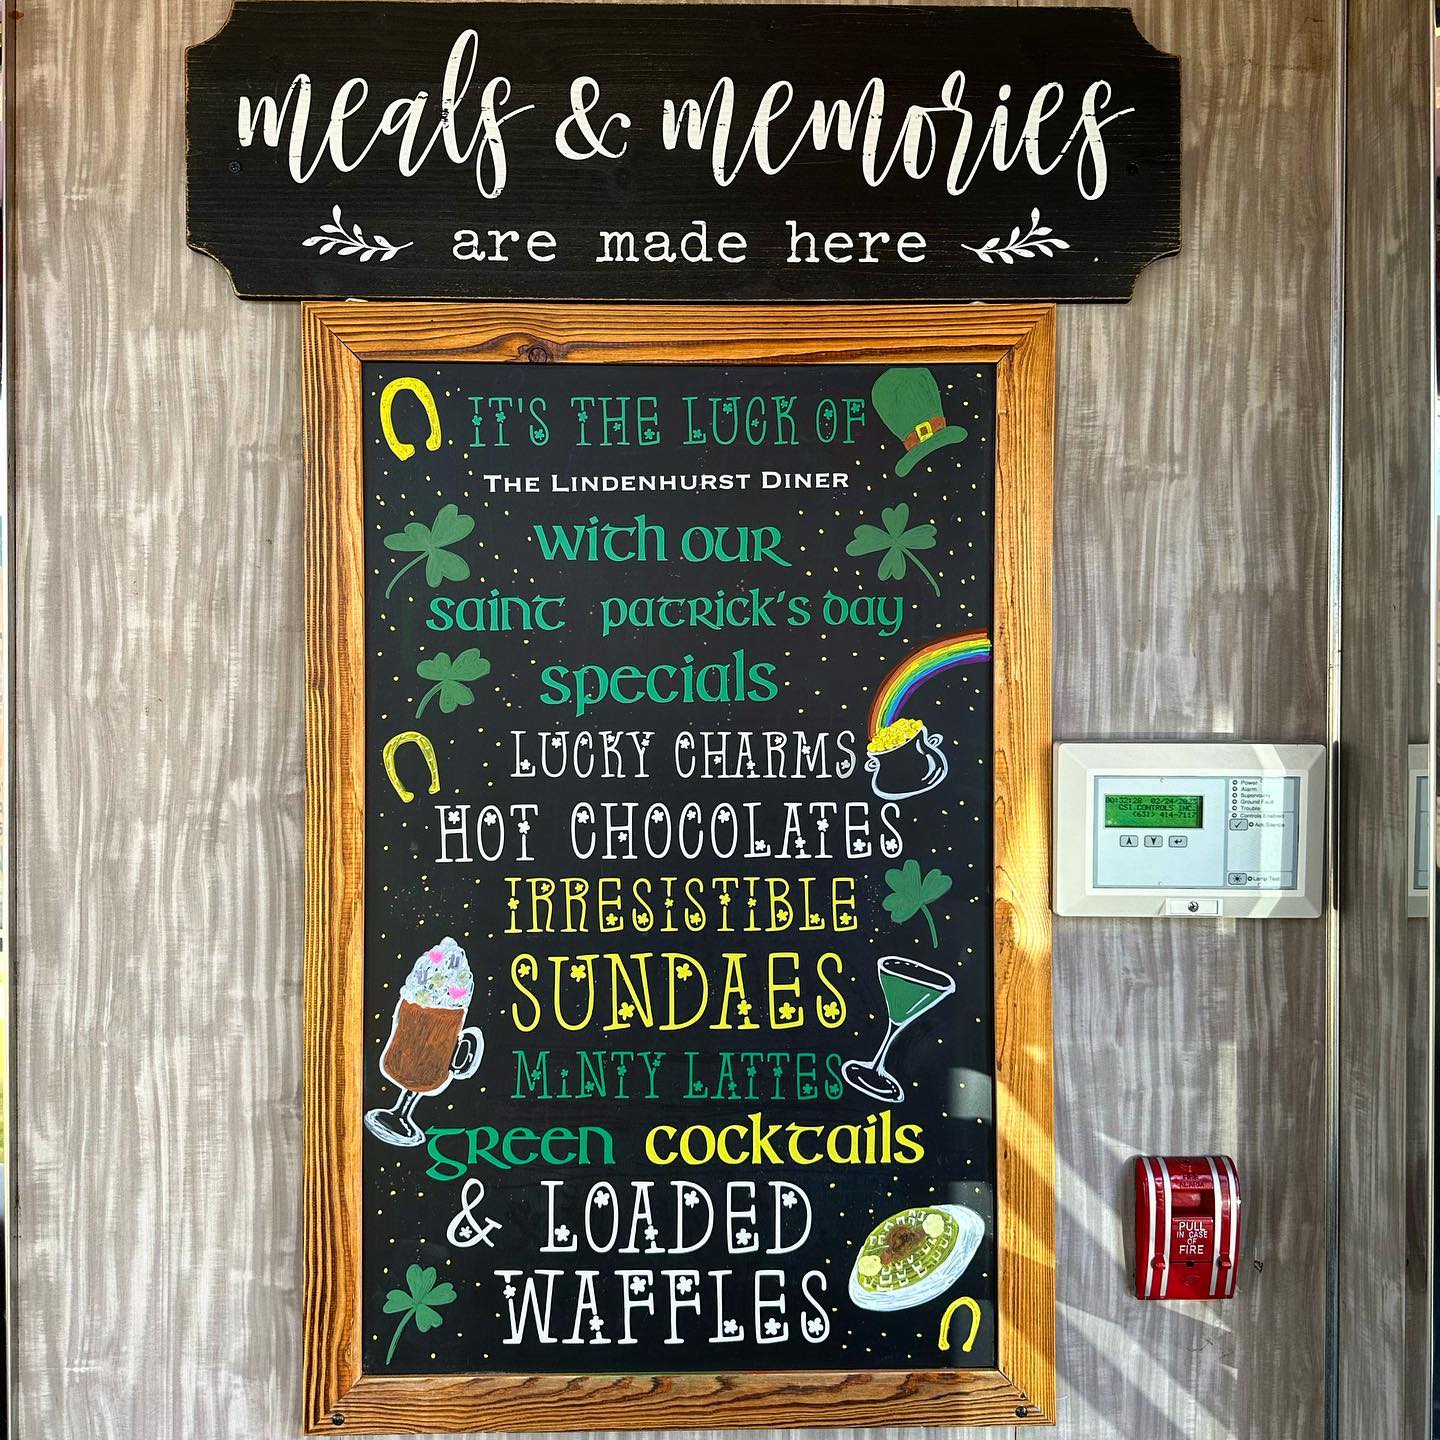 meals & memories
are made here
IT'S THE LUCK OF
THE LINDENHURST DINER
with our
saint patrick's day
specials
LUCKY CHARMS
HOT CHOCOLATES
IRRESISTIBLE
SUNDAES
MINTY LATTES
green cocktails
& LOADED
WAFFLES
02/24/2023
CSI CONTROLS INC.
(631) 414-7117
Power
Alarm
Supervisory
Ground Fault
Trouble
Controls Enabled
Ack/Silence
Lamp Test
FIRE
ALARM
PULL
IN CASE
OF
FIRE